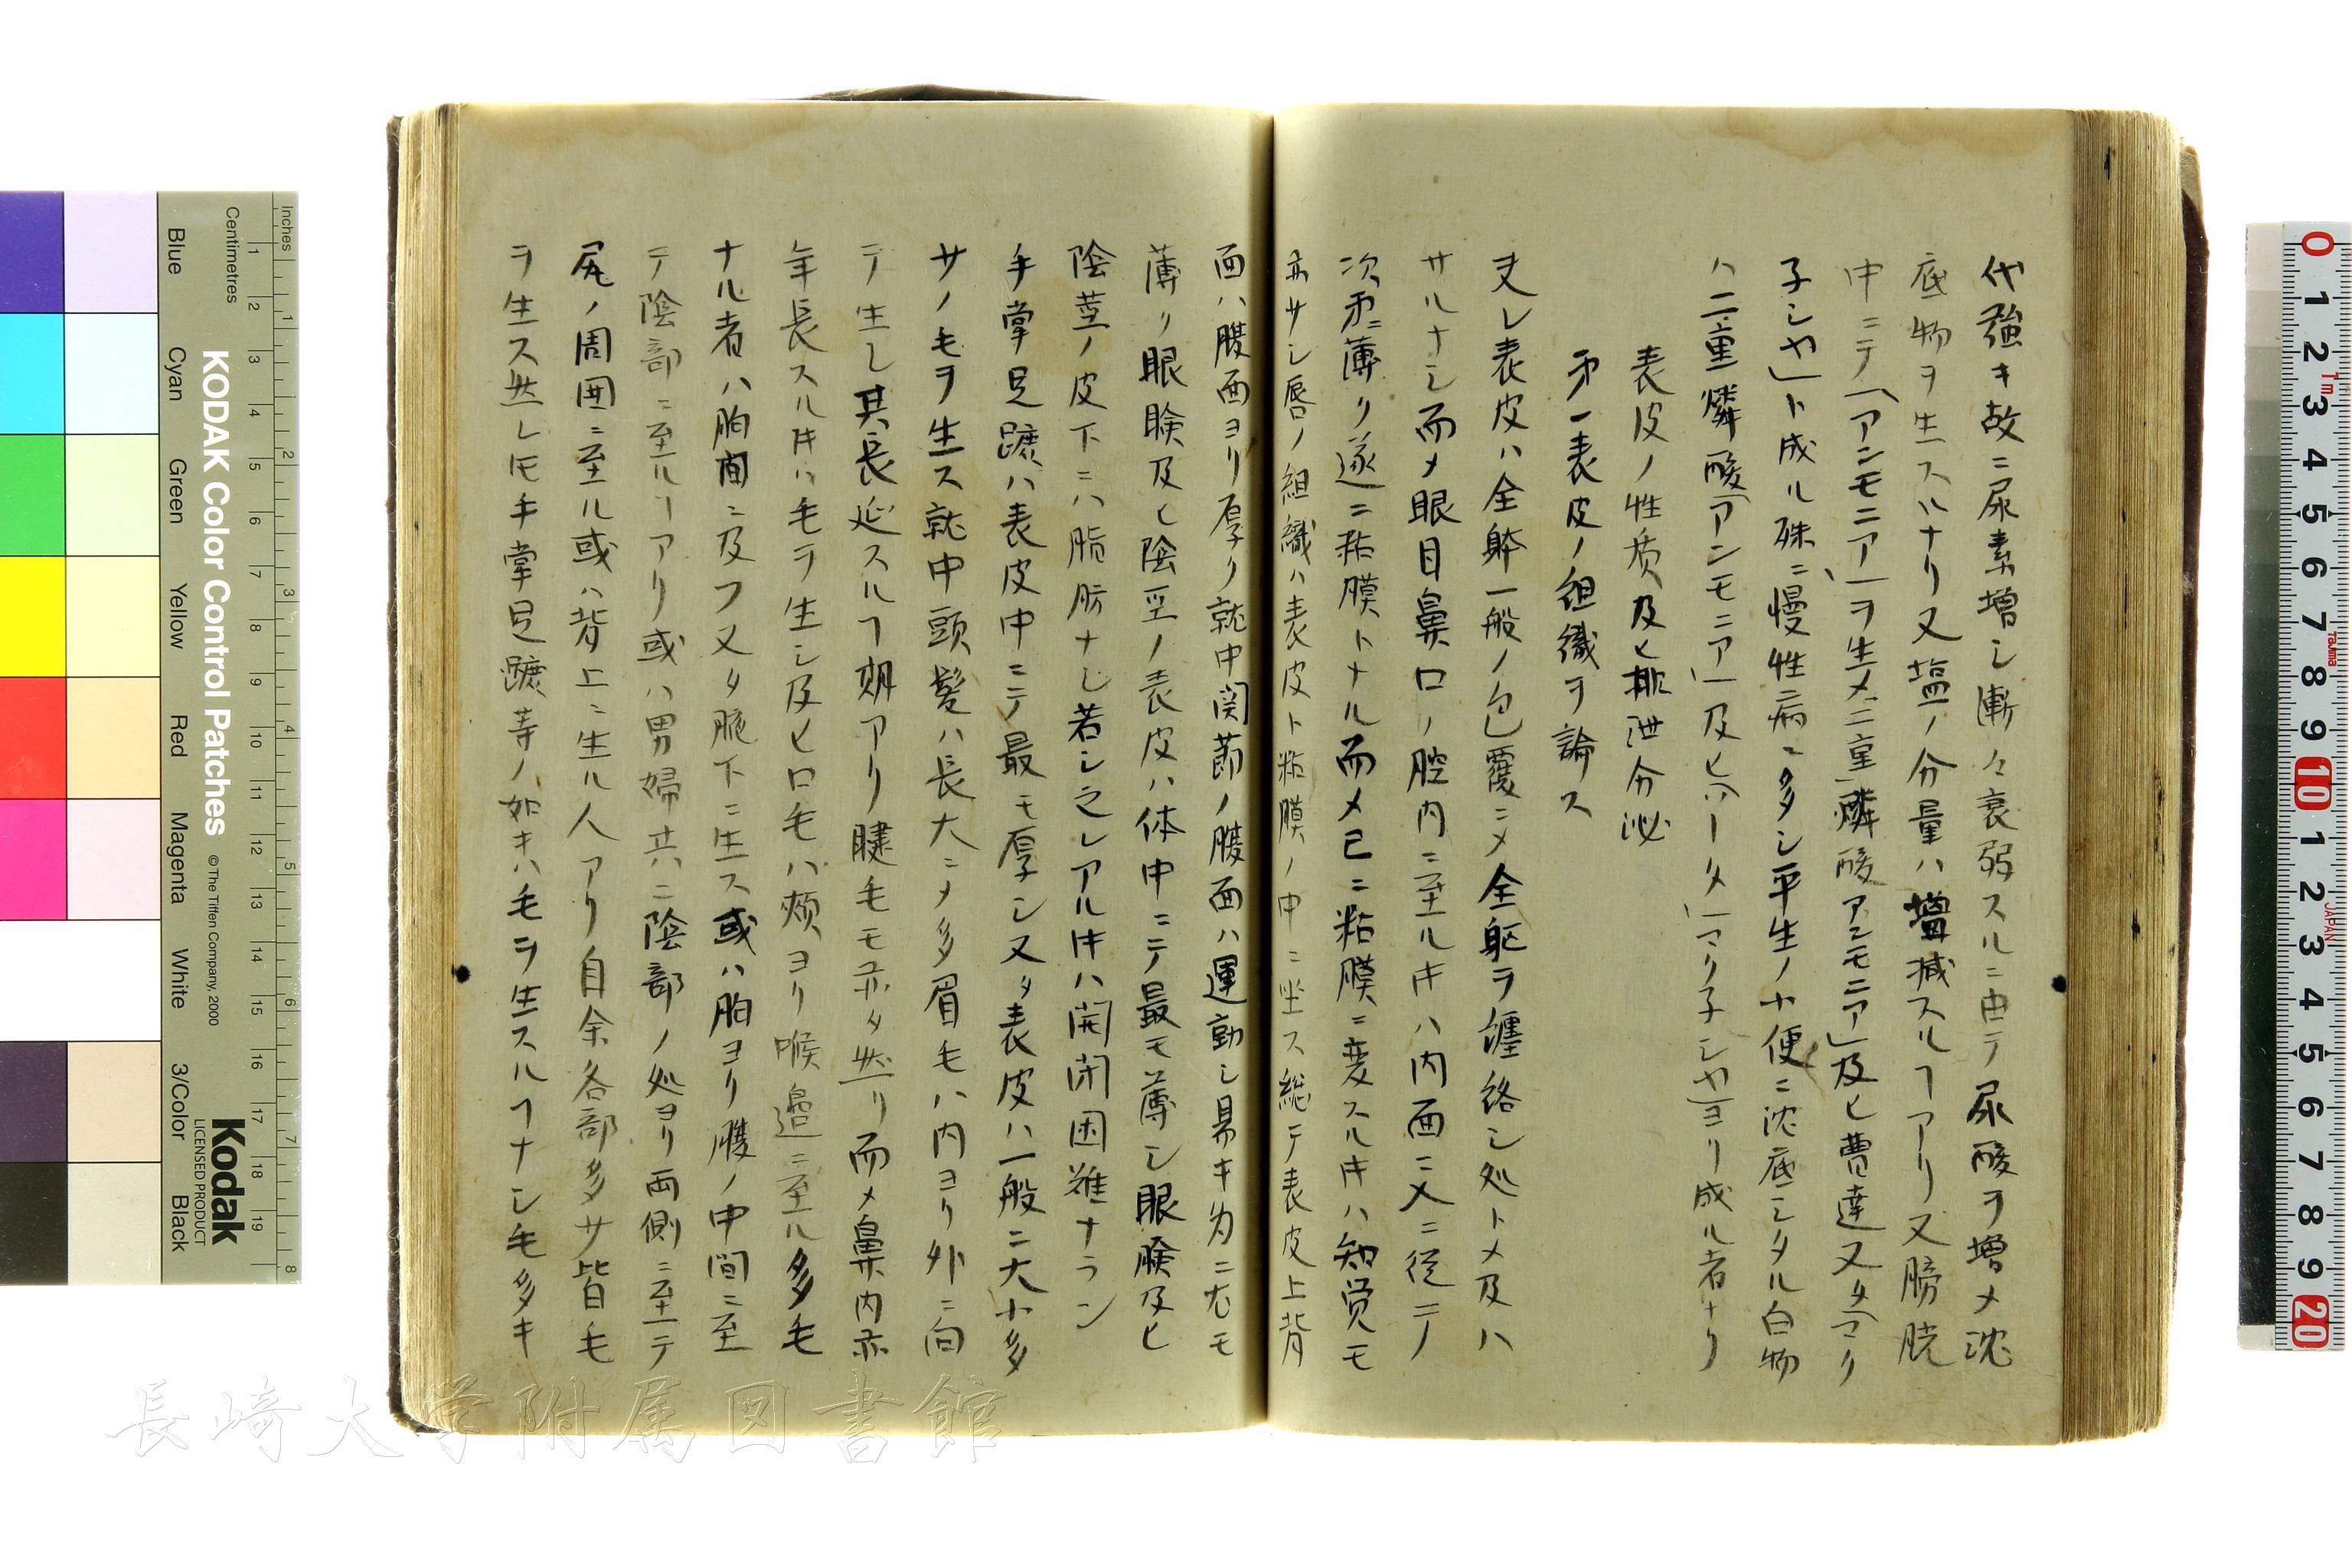 代強キ故ニ尿素増シ漸々衰弱スルニ由テ尿酸ヲ増メ沈
底物ヲ生スルナリ又塩ノ分量ハ増減スルヿアリ又膀胱
中ニテ「アンモニア」ヲ生メ二重燐酸アンモニア」及ヒ曹達又タ「マク
子シヤ」ト成ル殊ニ慢性病ニ多シ平生ノ小便ニ沈底シタル白物
ハ二重燐酸「アンモニア」及ヒ「ハータ」「マク子シヤ」ヨリ成ル者ナリ
表皮ノ性质及ヒ排泄分泌
第一表皮ノ組織ヲ論ス
夫レ表皮ハ全躰一般ノ包覆ニメ全躯ヲ纏絡シ処トメ及ハ
サルナシ而メ眼目鼻口ノ腔内ニ至ル𪜈ハ内面ニ入ニ従テ
次第ニ薄ク遂ニ粘膜トナル而メ已ニ粘膜ニ変スルキハ知覚モ
亦サシ唇ノ組織ハ表皮ト粘膜ノ中ニ坐ス総テ表皮上背
面ハ腹面ヨリ厚ク就中関節ノ腹面ハ運動シ易キ為ニ尤モ
薄ク眼瞼及ヒ陰茎ノ表皮ハ体中ニテ最モ薄シ眼瞼及ヒ
陰茎ノ皮下ニハ脂肪ナシ若シ之レアルキハ開閉困難ナラン
手掌足蹠ハ表皮中ニテ最モ厚シ又タ表皮ハ一般ニ大小多
サノモヲ生ス就中頭髪ハ長大ニメ多眉毛ハ内ヨリ外ニ向
テ生シ其長延スルヿ期アリ睫毛モ亦タ然リ而メ鼻内亦
年長スルキハ毛ヲ生シ及ヒ口毛ハ頬ヨリ喉邉ニ至ル多毛
ナル者ハ胸間ニ及フ又タ腋下ニ生ス或ハ胸ヨリ腹ノ中間ニ至
テ陰部ニ至ルヿアリ或ハ男婦共ニ陰部ノ処ヨリ両側ニ至テ
尻ノ周囲ニ至ル或ハ背上ニ生ル人アリ自余各部多サ皆毛
ヲ生ス然レ𪜈手掌足蹠等ノ如キハ毛ヲ生スルヿナシ毛多キ
長崎大学附属図書館
KODAK Color Control Patches
© The Tiffen Company, 2000
Kodak
LICENSED PRODUCT
Inches
Centimetres
Blue
Cyan
Green
Yellow
Red
Magenta
White
3/Color
Black